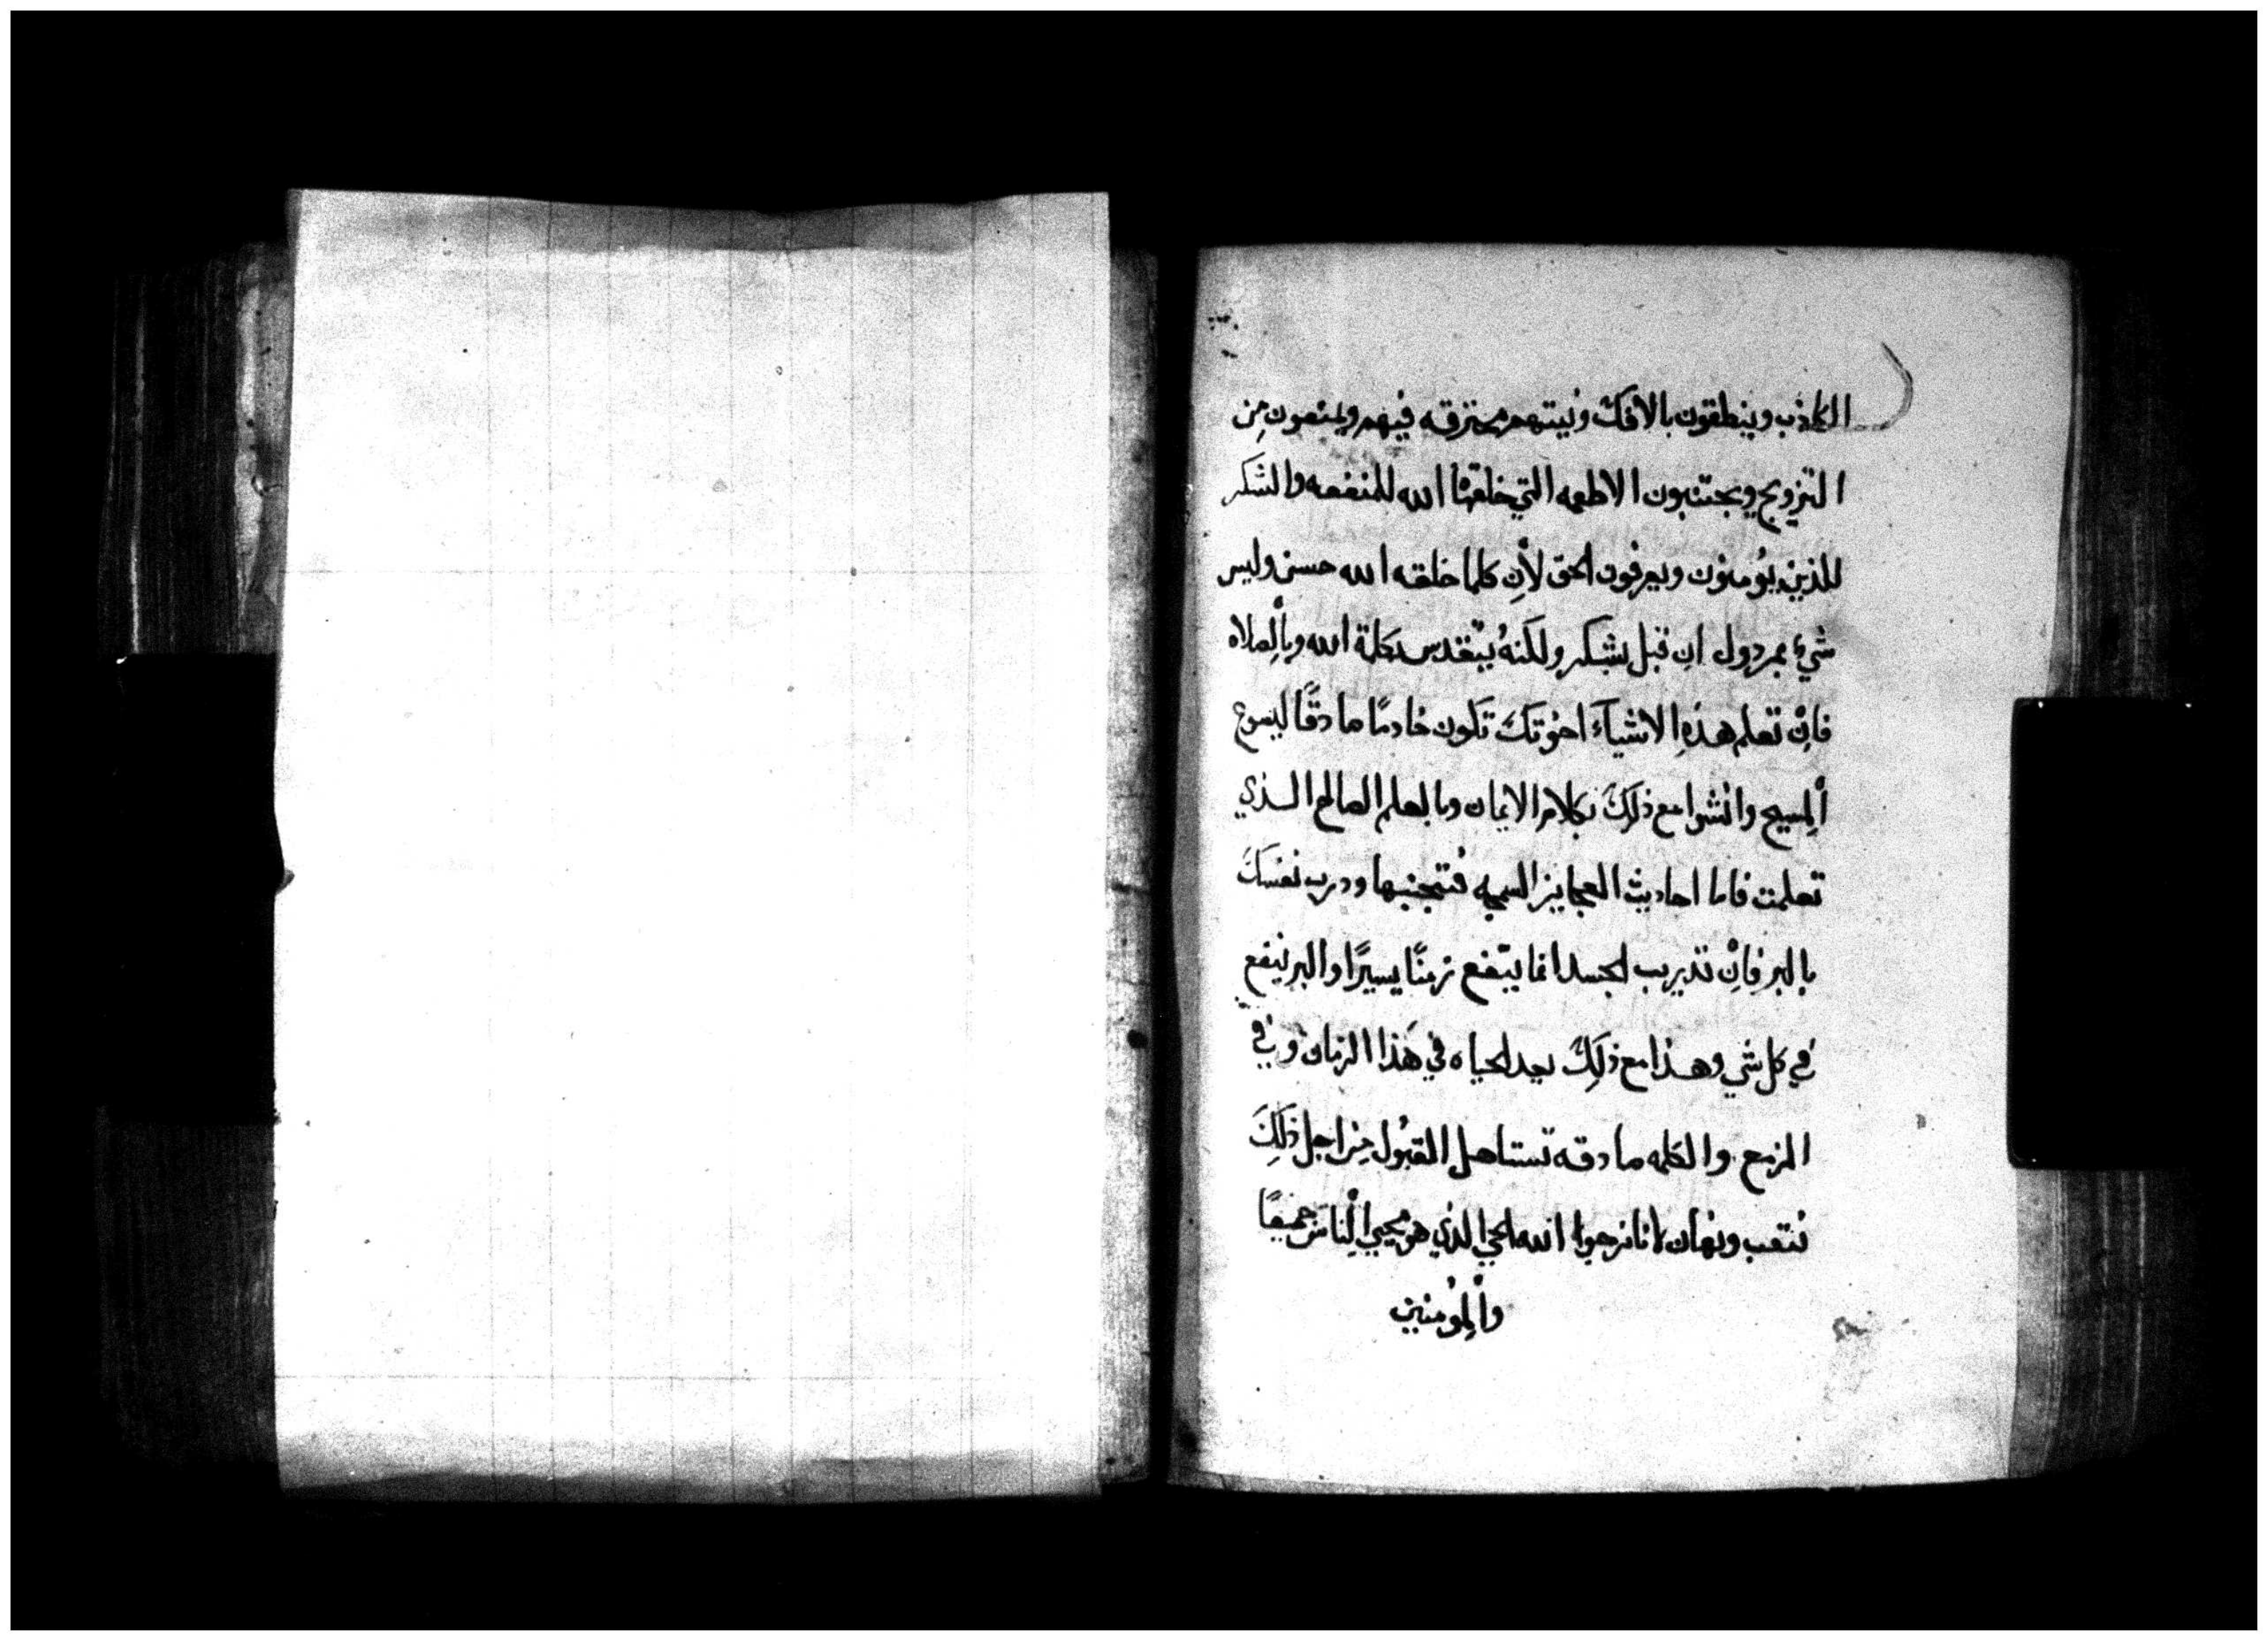 الكاذب وينطقون بالافك ونيتهم محترقه فيهم ويمنعون مِن
التزويج ويجتنبون الاطعمه التي خلقها الله للمنفعه والشكر
للذين يؤمنون ويعرفون الحق لأن كلما خلقه الله حسن وليس
شيء بمردول ان قبل بشكر ولكنهُ يتقدس بكلمة الله وبالصلاه
فاِنْ تعلم هذهِ الاشيآءَ اخوتكَ تكون خادمًا صادقًا ليسوع
ألمسيح وانشوا مع ذلكَ بكلام الايمان وبالعلم الصالح الذي
تعلمت فاما احاديث العجايز السمجه فتجنبها ودرب نفسكَ
بالبر فاِنْ تدريب الجسد انما ينفع زمنًا يسيرًا والبر ينفع
في كل شي وهذا مع ذلِكَ يعد الحياه في هَذا الزمان وفي
المزمع والكلمه صادقه تستاهل القبُول مِن اجل ذلِكَ
نتعب ونهان لانا نرجوا الله الحي الذي هو محيي ألناسَ جميعًا
وألمؤمنين